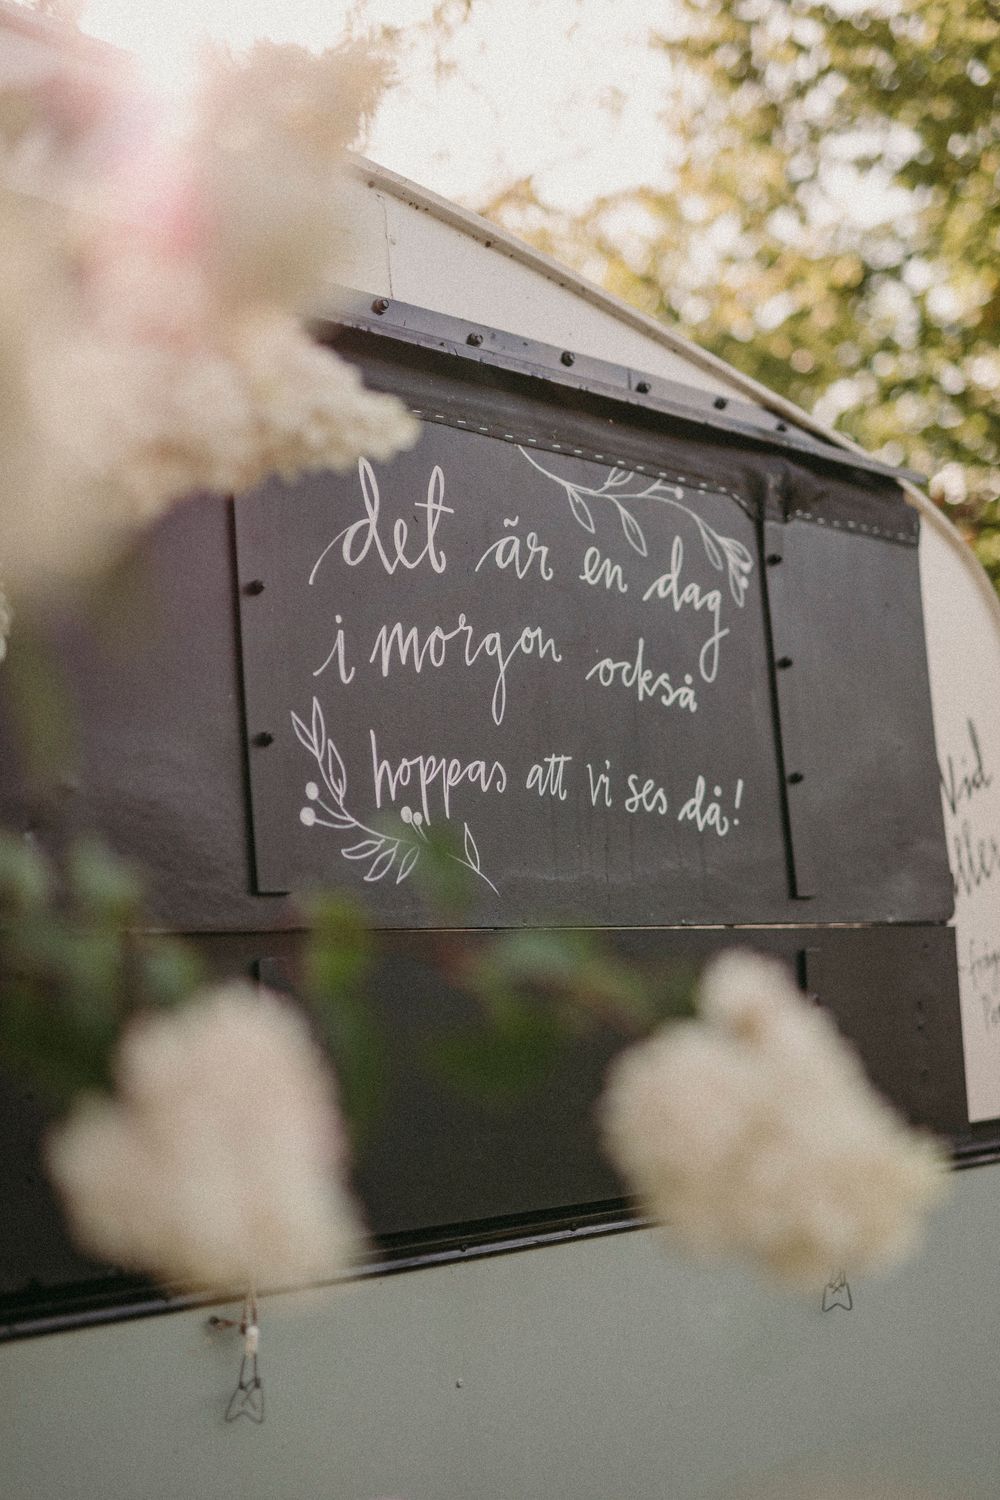 det är en dag
i morgon också
hoppas att vi ses då!
Vid